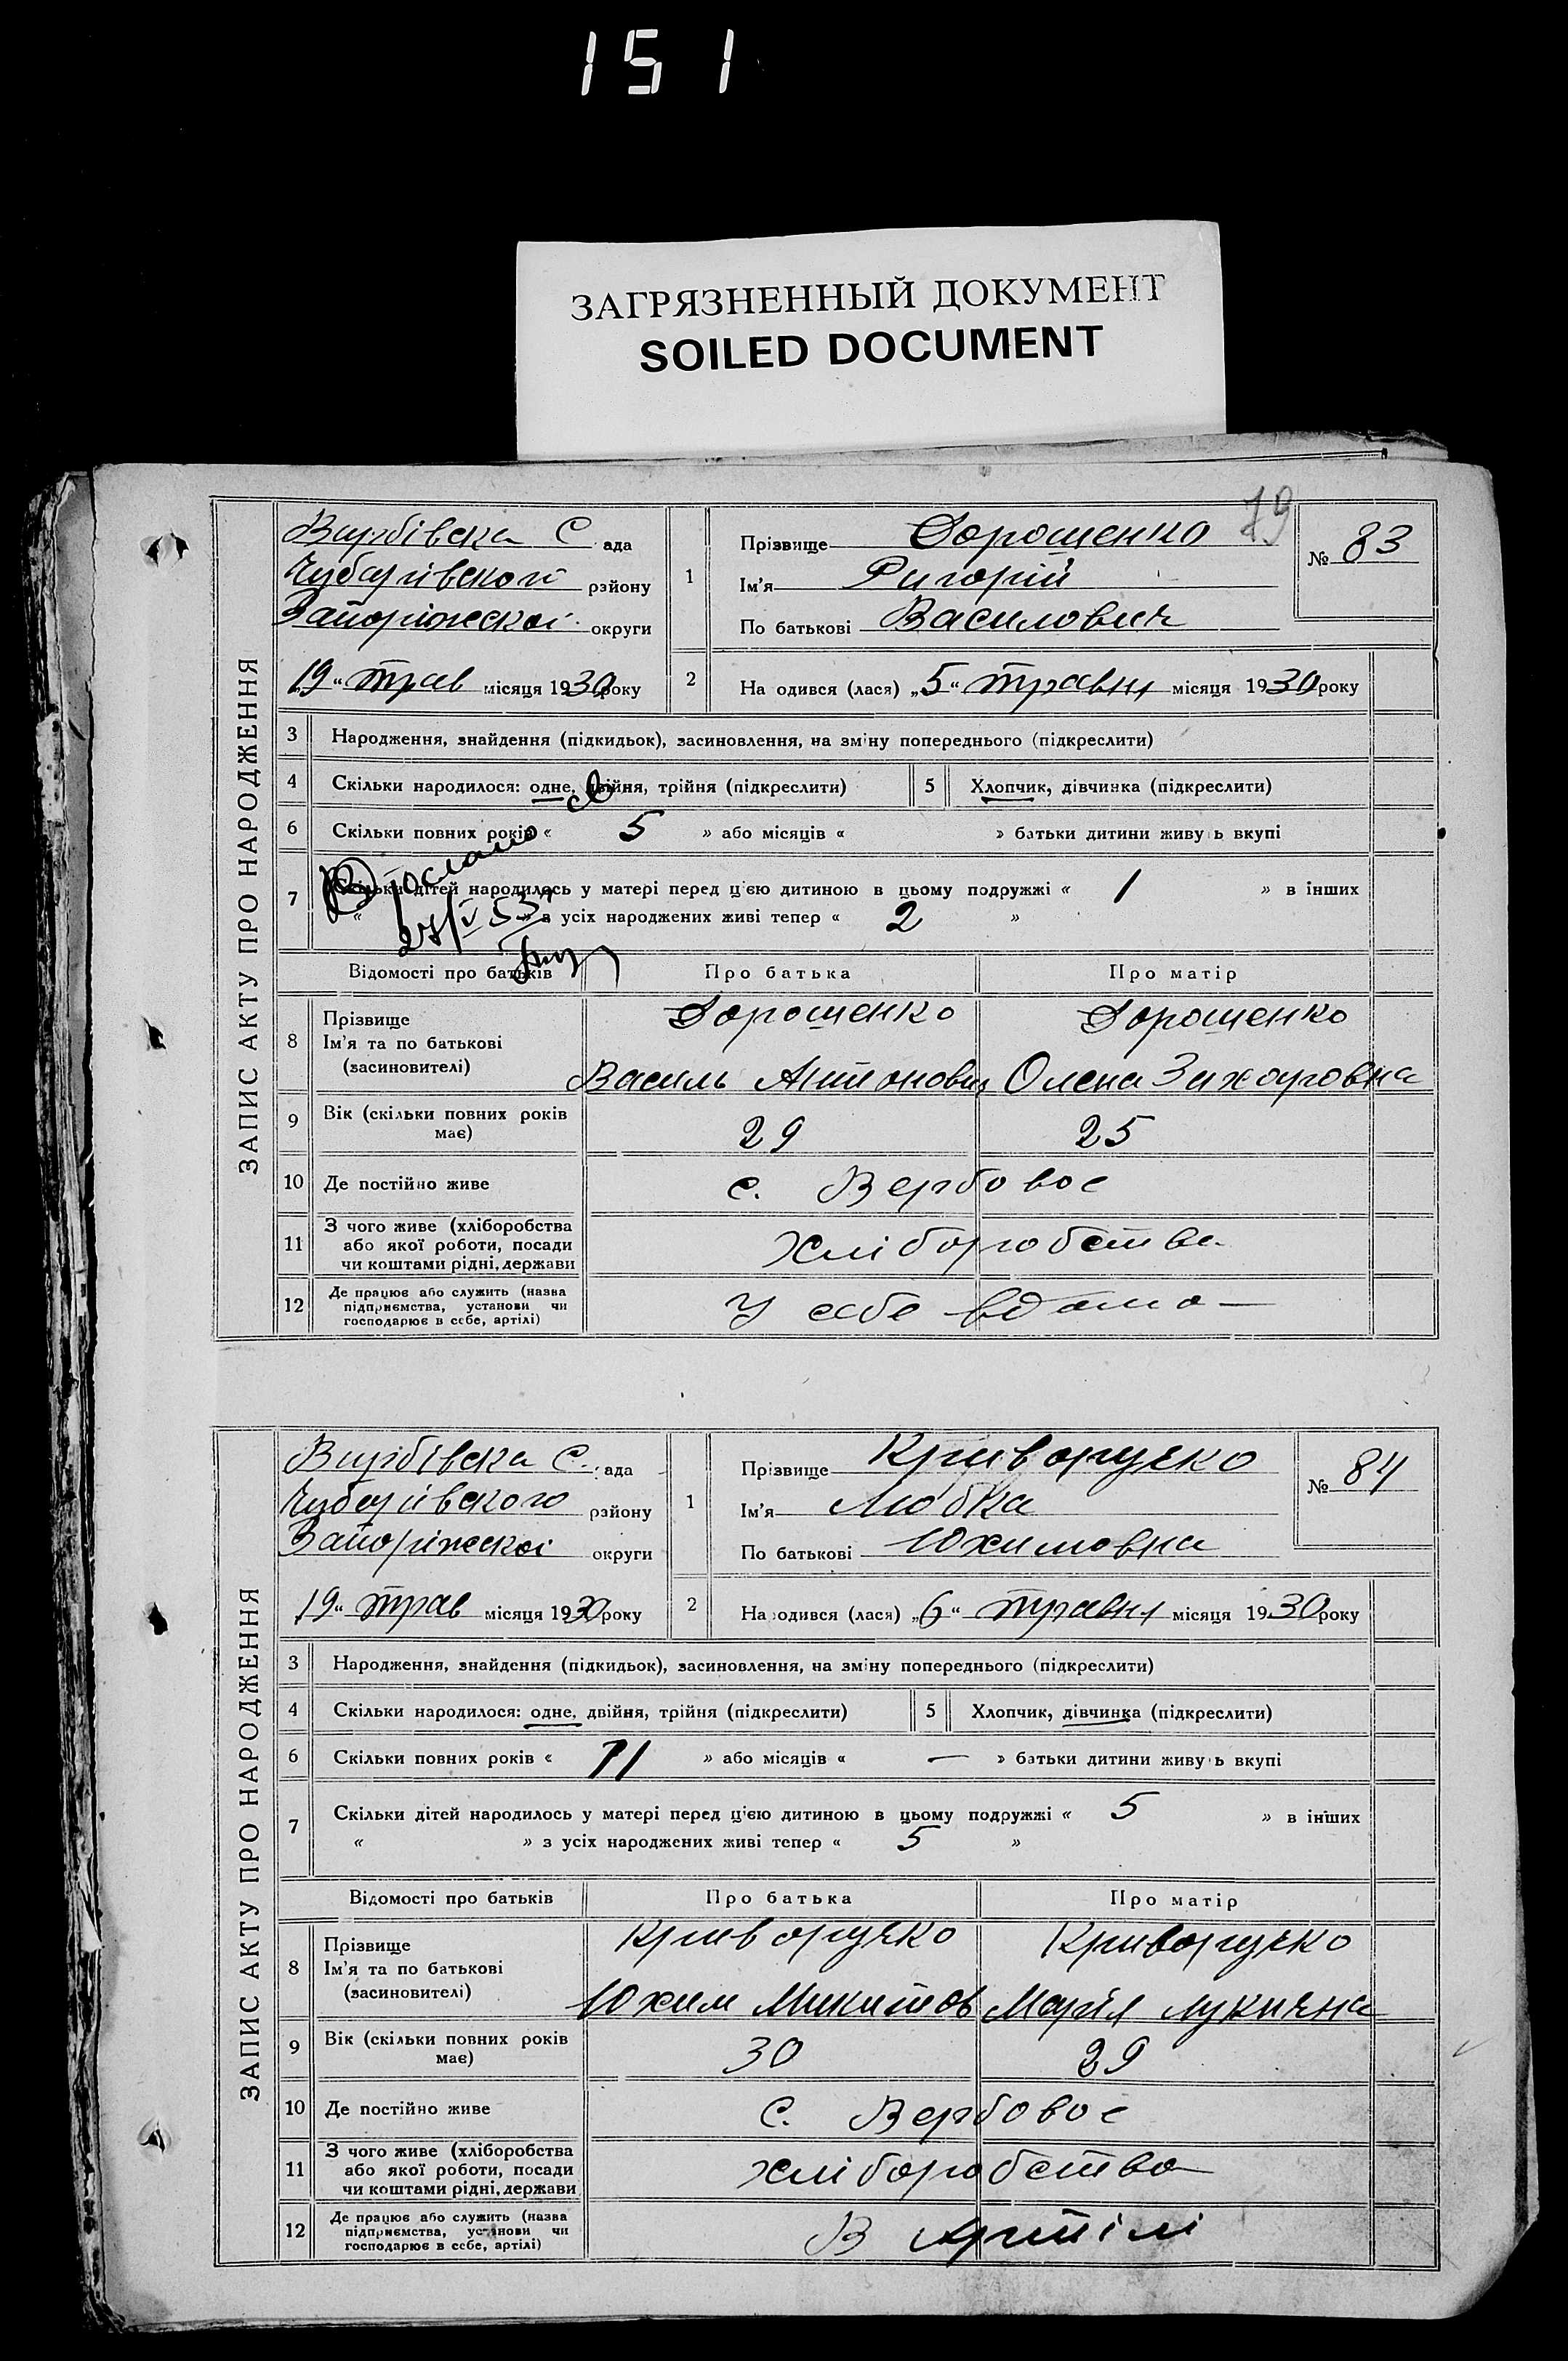 151
ЗАГРЯЗНЕННЫЙ ДОКУМЕНТ
SOILED DOCUMENT
79
ЗАПИС АКТУ ПРО НАРОДЖЕННЯ
Вирбівска С ада
Чубарівского району
Запоріжскоі округи
„19“ трав місяця 1930 року
1 Прізвище Дорошенко
Ім'я Григорій
По батькові Василович
№ 83
2 На одився (лася) „5“ травня місяця 1930 року
3 Народження, знайдення (підкидьок), засиновлення, на зміну попереднього (підкреслити)
4 Скільки народилося: одне, двійня, трійня (підкреслити) 5 Хлопчик, дівчинка (підкреслити)
6 Скільки повних років « 5 » або місяців « » батьки дитини живу ь вкупі
7 Скільки дітей народилось у матері перед цією дитиною в цьому подружжі « 1 » в інших
« » з усіх народжених живі тепер « 2 »
27/V 53
Відомості про батьків Про батька Про матір
8 Прізвище Ім'я та по батькові (засиновителі) Дорошенко Дорошенко
Василь Антонович Олена Захаровна
9 Вік (скільки повних років має) 29 25
10 Де постійно живе с. Вербовое
11 З чого живе (хліборобства або якої роботи, посади чи коштами рідні, держави Хліборобства
12 Де працює або служить (назва підприємства, установи чи господарює в себе, артілі) У себе вдома
ЗАПИС АКТУ ПРО НАРОДЖЕННЯ
Вирбівска С. ада
Чубарівского району
Запоріжскоі округи
„19“ трав місяця 1930 року
1 Прізвище Криворучко
Ім'я Любка
По батькові Юхимовна
№ 84
2 На одився (лася) „6“ травня місяця 1930 року
3 Народження, знайдення (підкидьок), засиновлення, на зміну попереднього (підкреслити)
4 Скільки народилося: одне, двійня, трійня (підкреслити) 5 Хлопчик, дівчинка (підкреслити)
6 Скільки повних років « 11 » або місяців « — » батьки дитини живу ь вкупі
7 Скільки дітей народилось у матері перед цією дитиною в цьому подружжі « 5 » в інших
« » з усіх народжених живі тепер « 5 »
Відомості про батьків Про батька Про матір
8 Прізвище Ім'я та по батькові (засиновителі) Криворучко Криворучко
Юхим Микитов Марія Лукична
9 Вік (скільки повних років має) 30 29
10 Де постійно живе С. Вербовое
11 З чого живе (хліборобства або якої роботи, посади чи коштами рідні, держави хліборобства
12 Де працює або служить (назва підприємства, установи чи господарює в себе, артілі) В Артілі